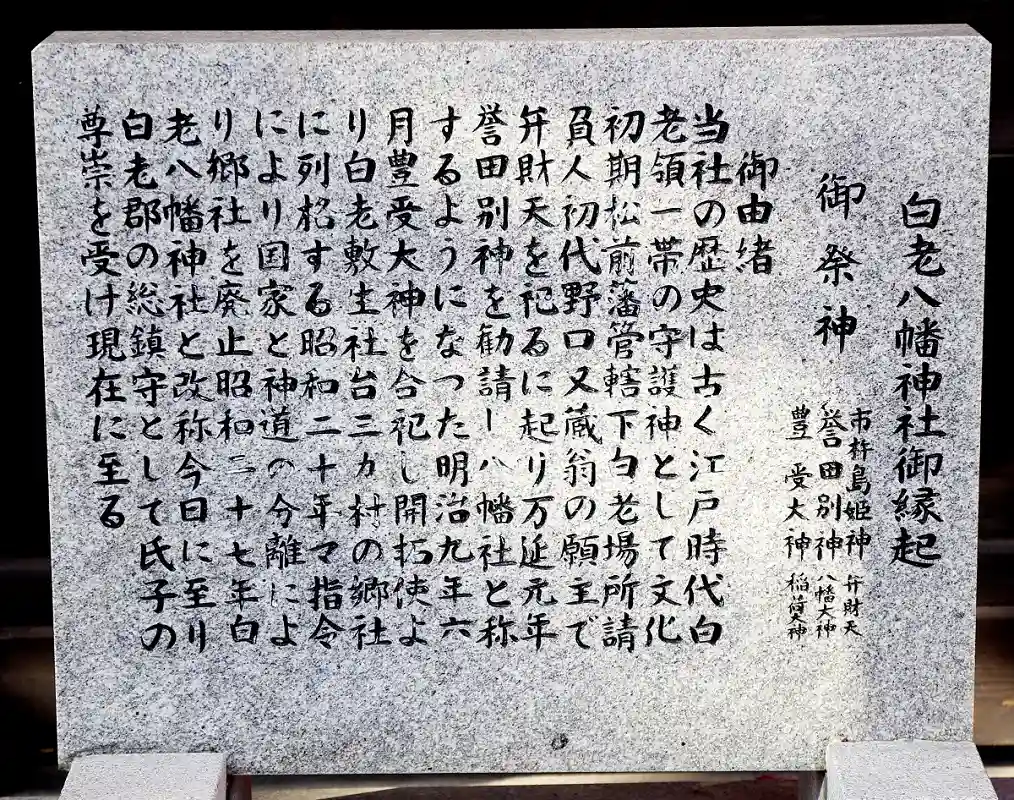 白老八幡神社御縁起
御祭神
市杵島姫神 弁財天
誉田別神 八幡大神
豊受大神 稲荷大神
御由緒
当社の歴史は古く江戸時代白
老領一帯の守護神として文化
初期松前藩管轄下白老場所請
負人初代野口又蔵翁の願主で
弁財天を祀るに起り万延元年
誉田別神を勧請し八幡社と称
するようになつた明治九年六
月豊受大神を合祀し開拓使よ
り白老敷生社台三カ村の郷社
に列格する昭和二十年マ指令
により国家と神道の分離によ
り郷社を廃止昭和二十七年白
老八幡神社と改称今日に至り
白老郡の総鎮守として氏子の
尊崇を受け現在に至る